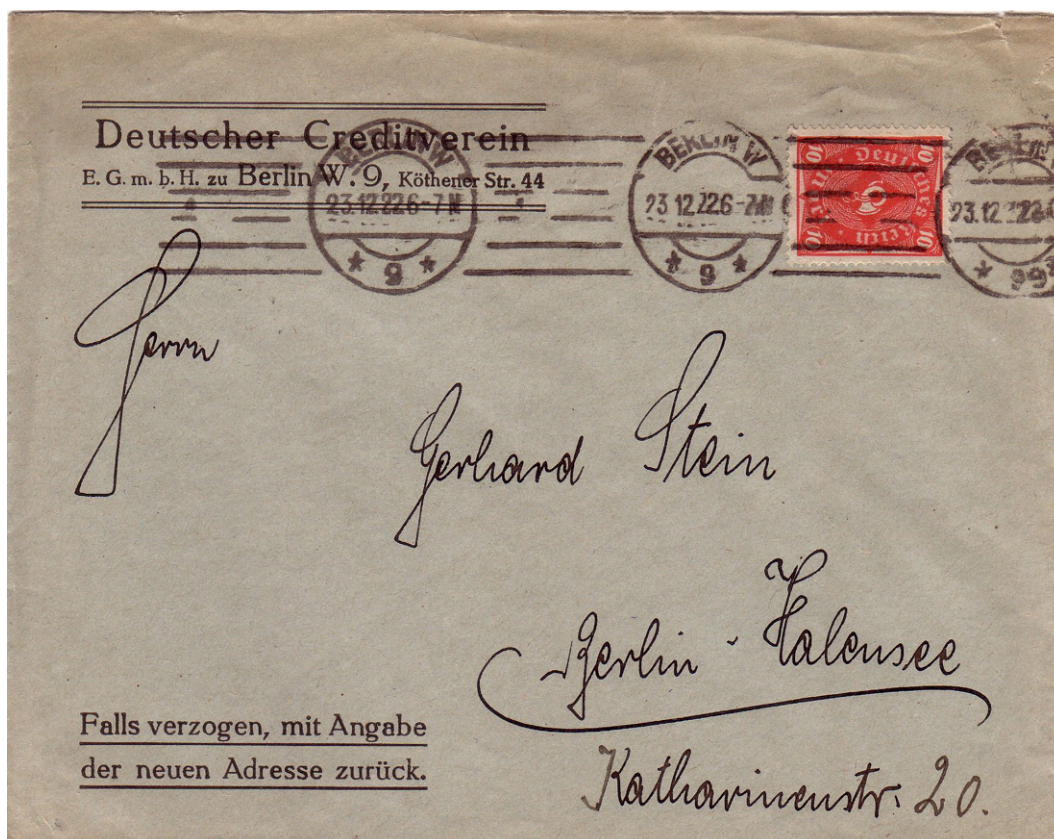 Deutscher Creditverein
E. G. m. b. H. zu Berlin W. 9, Köthener Str. 44
BERLIN W
23.12.22 6-7 N
* 9 *
BERLIN W
23.12.22 6-7 N
* 9 *
Deutsches Reich
10
10
10
10
BERLIN
23.12.22
* 9
Herrn
Gerhard Stein
Berlin-Halensee
Katharinenstr. 20.
Falls verzogen, mit Angabe
der neuen Adresse zurück.